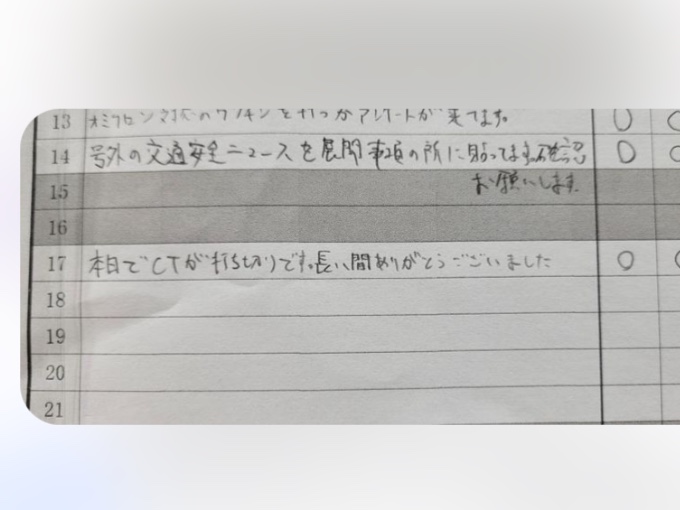 13 オミクロン対応のワクチンを打つかアンケートが来てます。 ○
14 号外の交通安全ニュースを展開事項の所に貼ってます。確認 ○
15 お願いします。
16
17 本日でCTが打ち切りです。長い間ありがとうございました ○
18
19
20
21